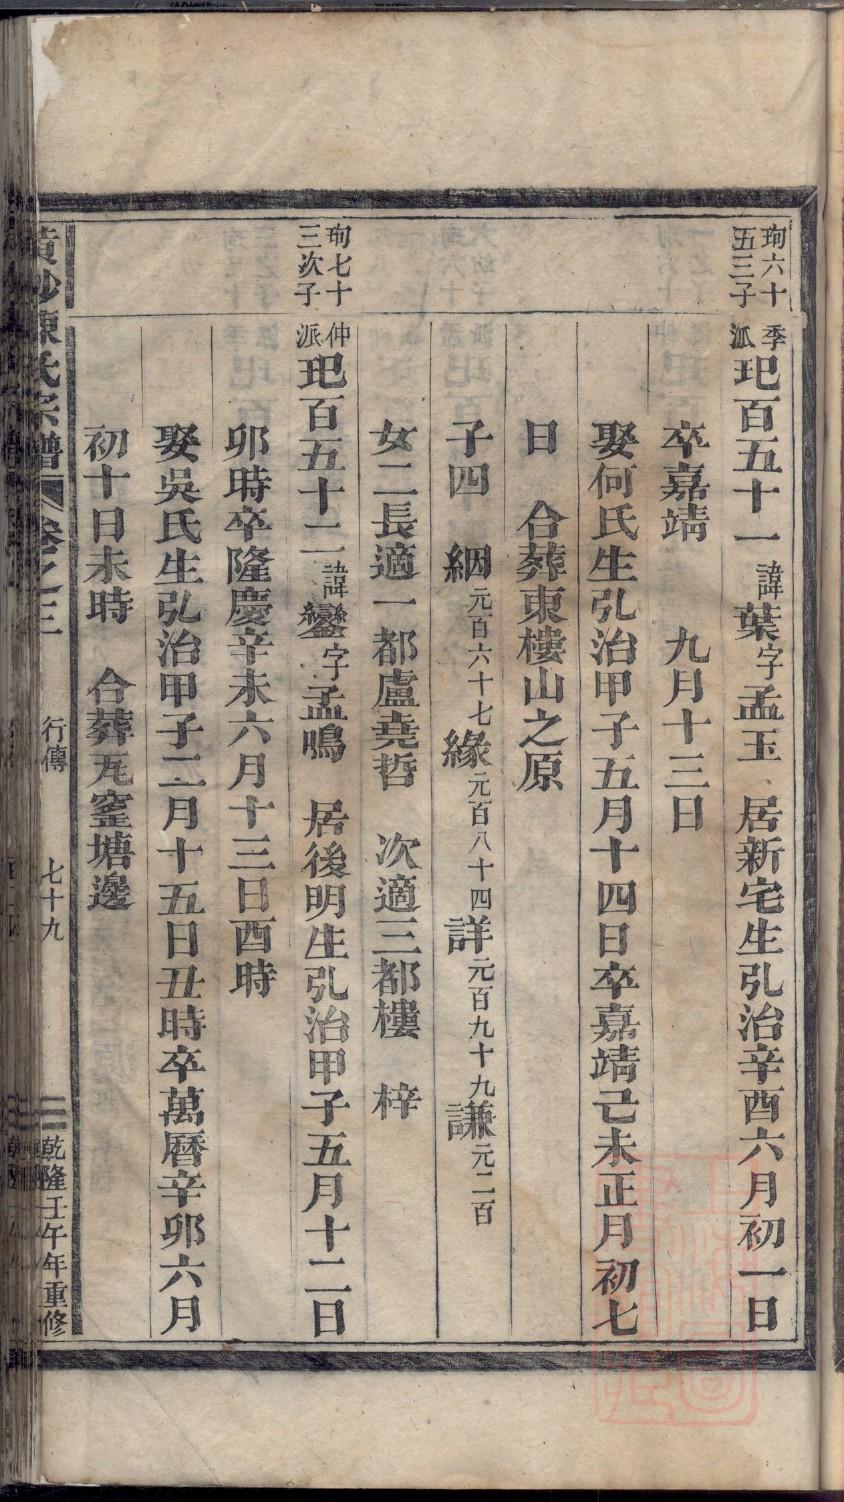 珣六十
五三子
季
派
玘百五十一諱葉字孟玉 居新宅生弘治辛酉六月初一日
卒嘉靖 九月十三日
娶何氏生弘治甲子五月十四日卒嘉靖己未正月初七
日 合葬東樓山之原
子四 絪元百六十七緣元百八十四詳元百九十九謙元二百
女二長適一都盧堯哲 次適三都樓 梓
珣七十
三次子
仲
派
玘百五十二諱鑾字孟鳴 居後明生弘治甲子五月十二日
卯時卒隆慶辛未六月十三日酉時
娶吳氏生弘治甲子二月十五日丑時卒萬曆辛卯六月
初十日未時 合葬瓦窰塘邊
陳氏宗譜 卷之三 行傳 七十九 乾隆壬午年重修